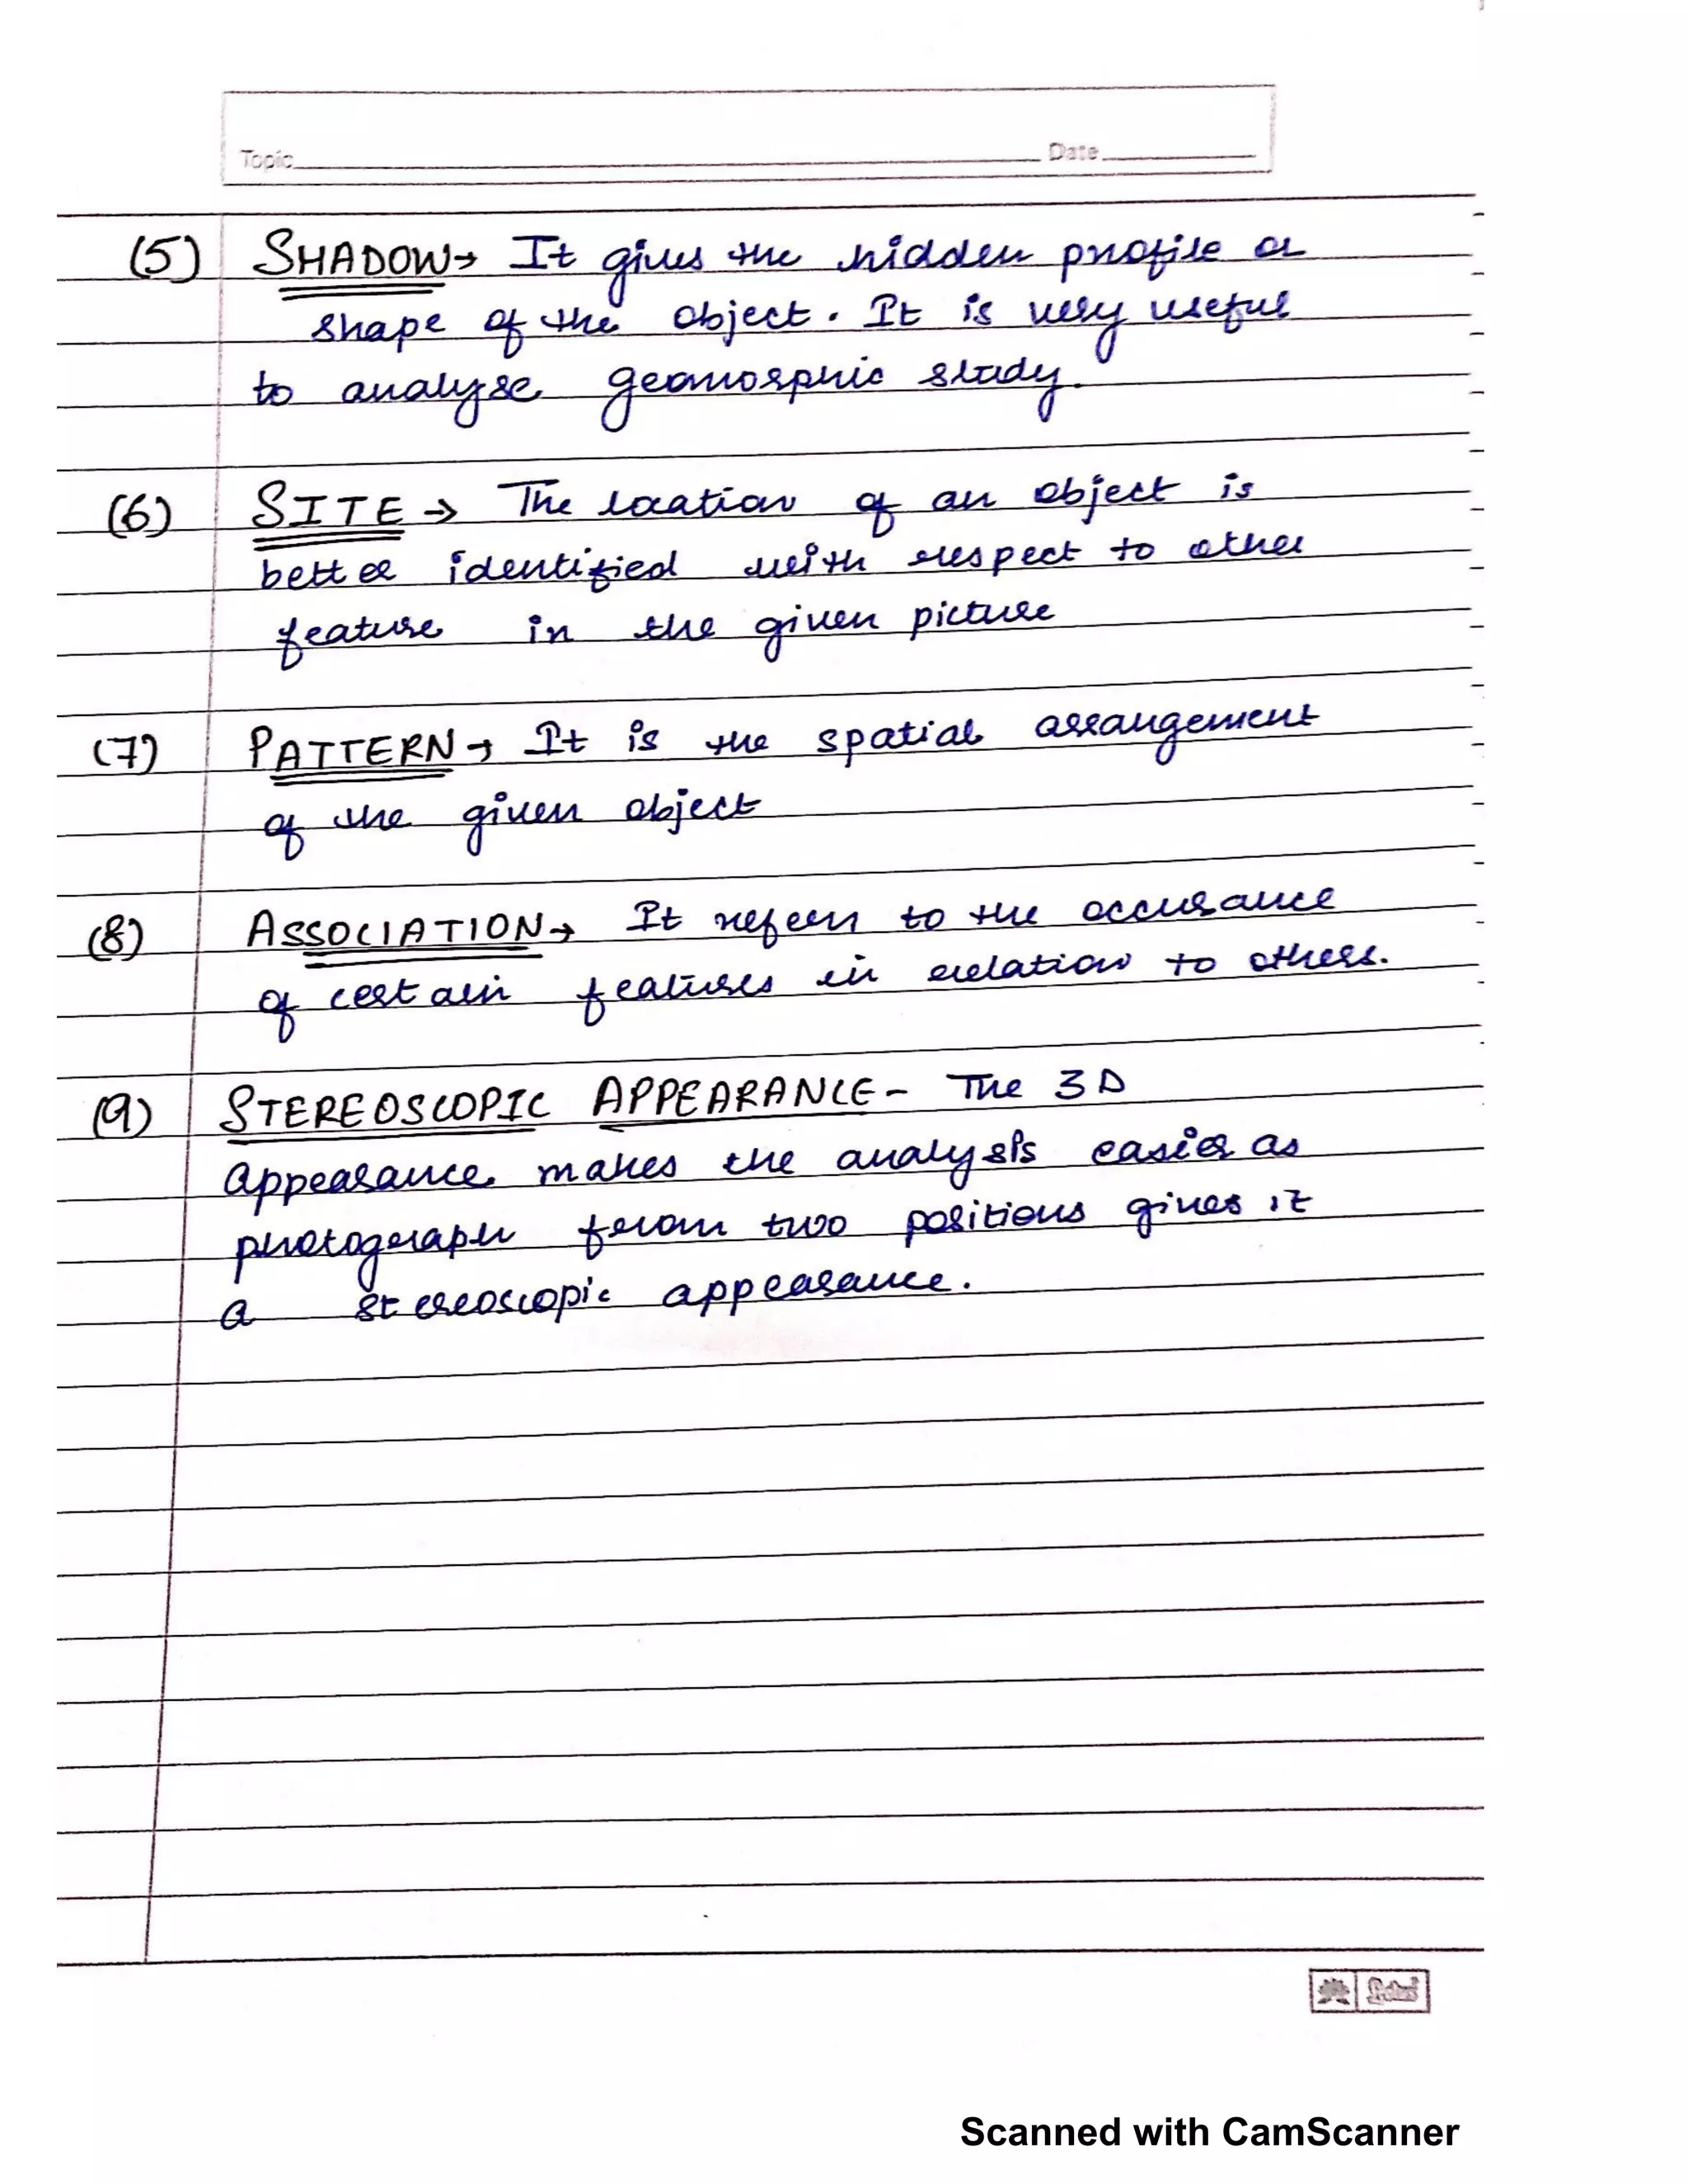 Topic Date
(5) SHADOW→ It gives the hidden profile or
shape of the object. It is very useful
to analyse geomorphic study.
(6) SITE → The location of an object is
better identified with respect to other
feature in the given picture
(7) PATTERN → It is the spatial arrangement
of the given object
(8) ASSOCIATION→ It refers to the occurance
of certain features in relation to others.
(9) STEREOSCOPIC APPEARANCE - The 3D
appearance makes the analysis easier as
photograph from two positions gives it
a stereoscopic appearance.
Lotus
Scanned with CamScanner